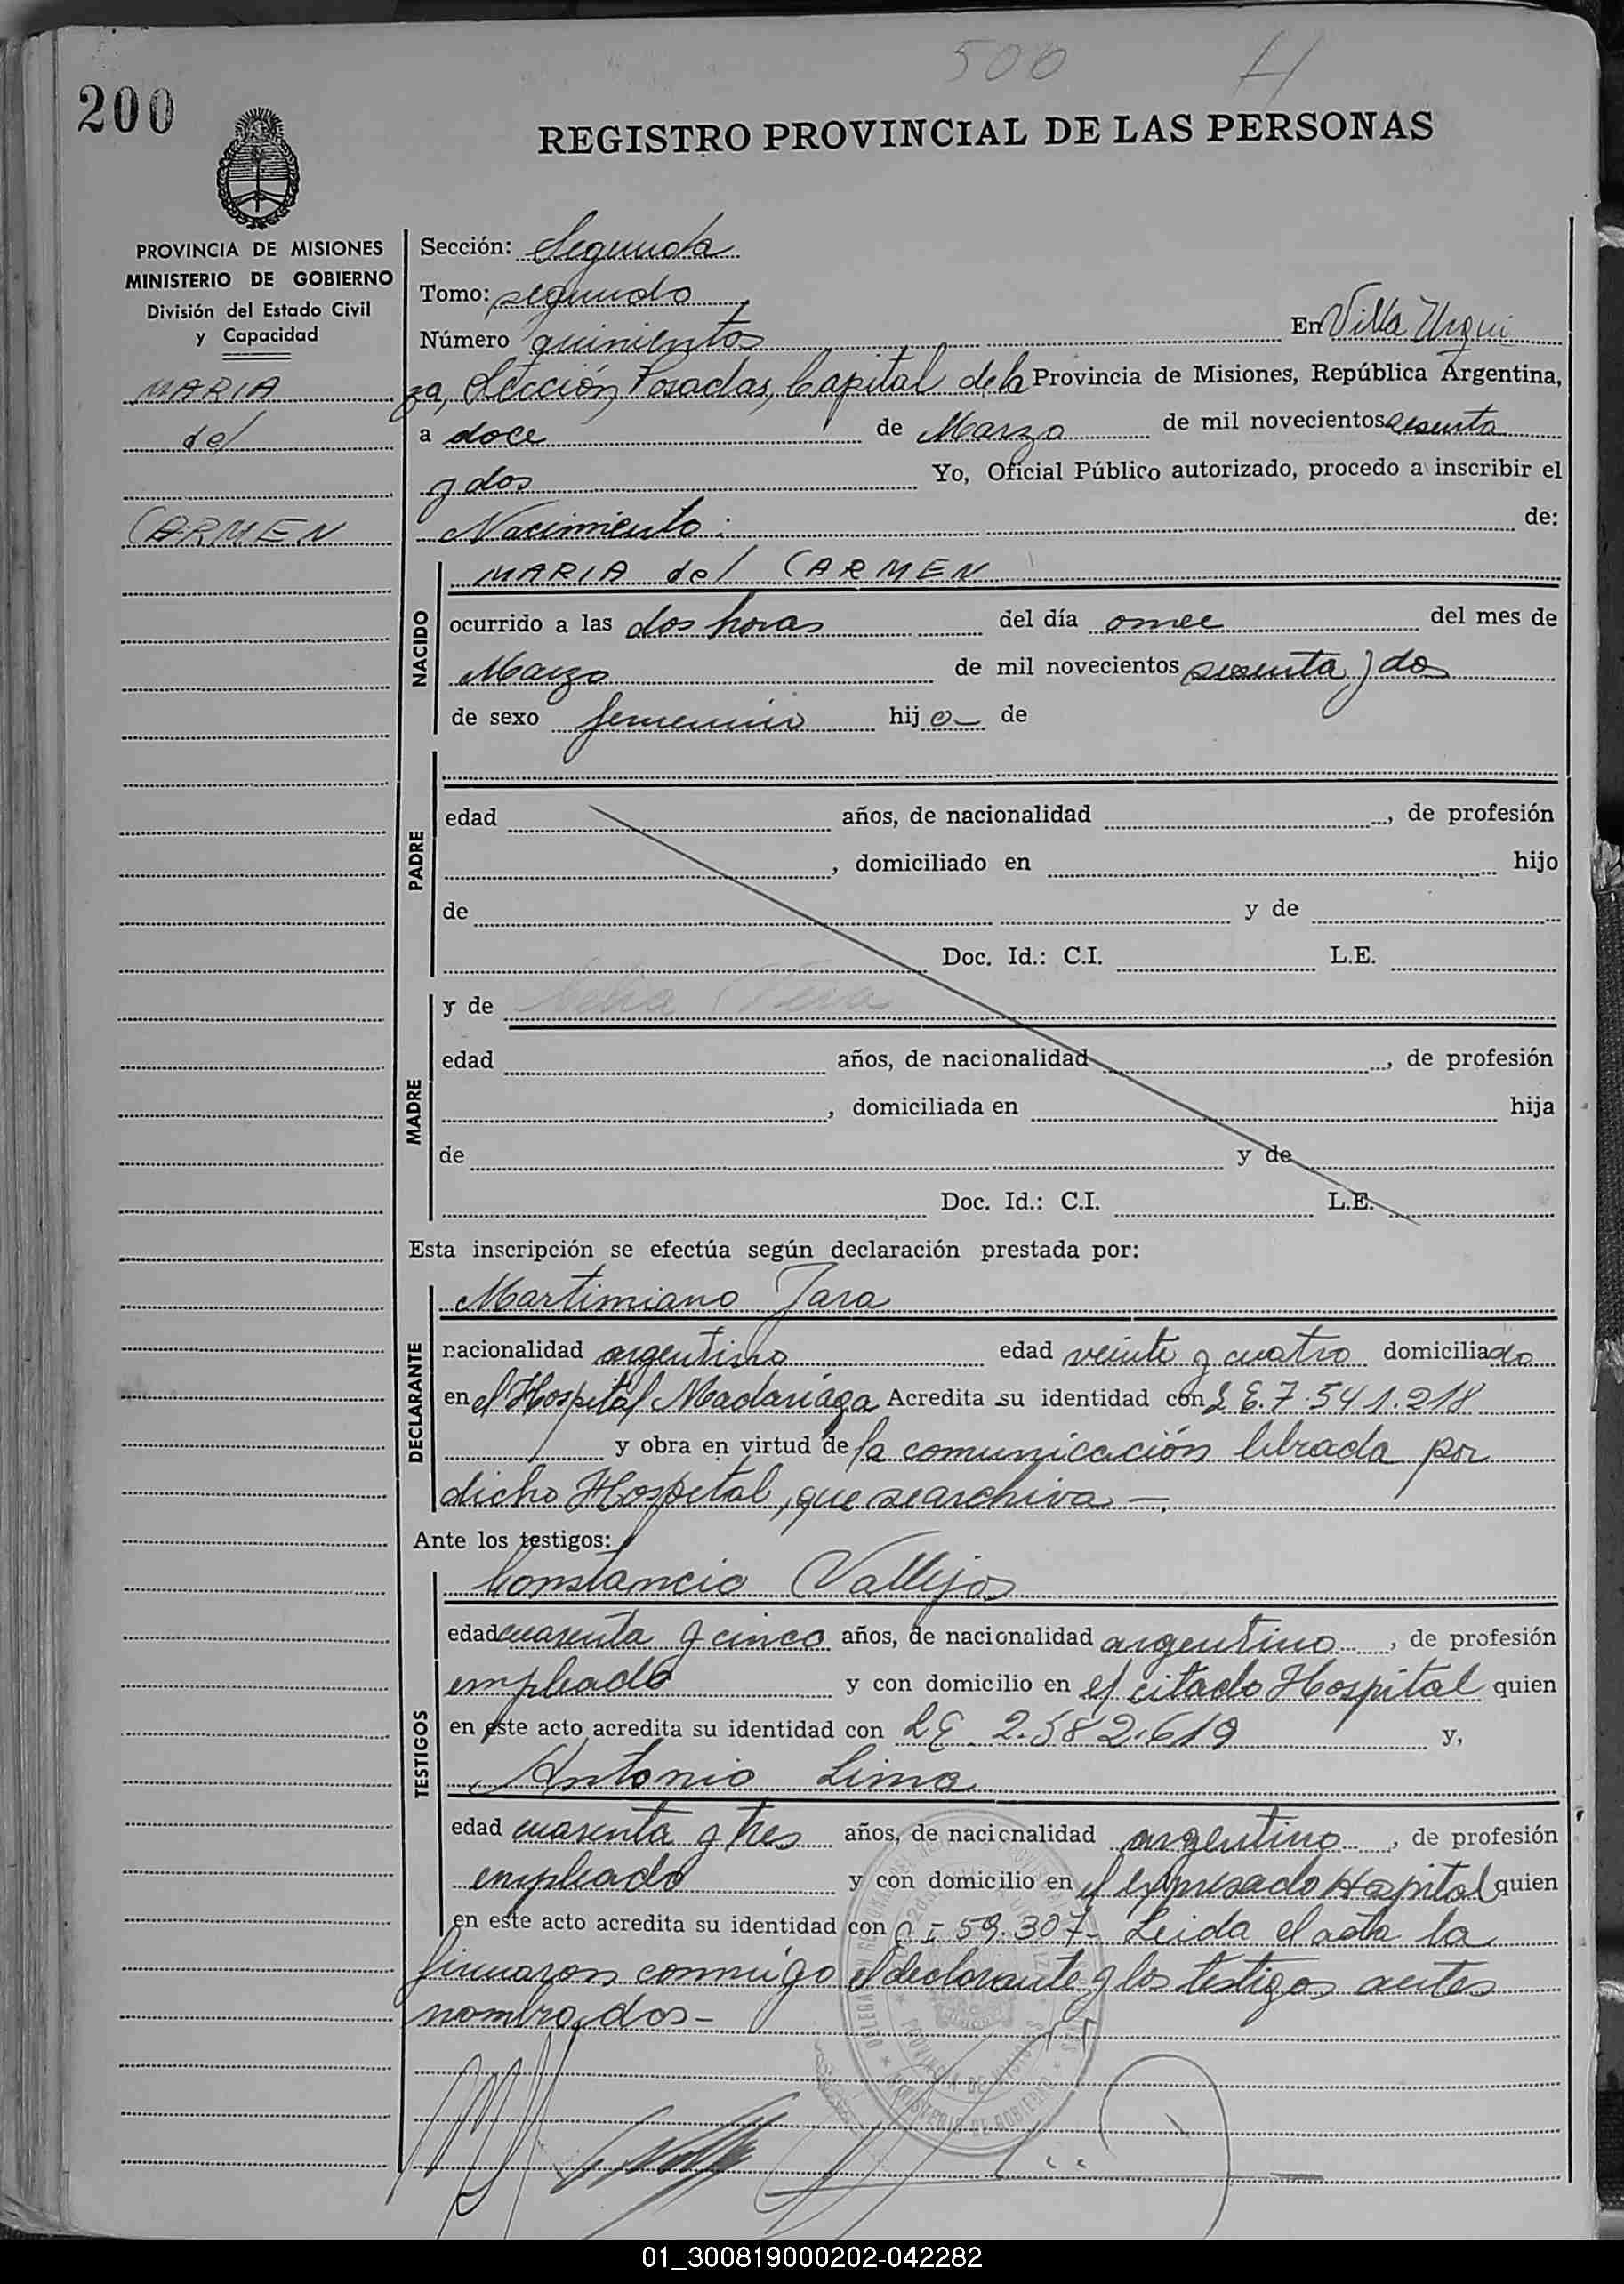 500 H
200
REGISTRO PROVINCIAL DE LAS PERSONAS
PROVINCIA DE MISIONES
MINISTERIO DE GOBIERNO
División del Estado Civil
y Capacidad
MARIA
del
CARMEN
Sección: Segunda
Tomo: segundo
Número quinientos En Villa Urqui
za, Sección Posadas, Capital de la Provincia de Misiones, República Argentina,
a doce de Marzo de mil novecientos sesenta
y dos Yo, Oficial Público autorizado, procedo a inscribir el
Nacimiento: de:
NACIDO
MARIA del CARMEN
ocurrido a las dos horas del día once del mes de
Marzo de mil novecientos sesenta y dos
de sexo femenino hija de
PADRE
edad años, de nacionalidad , de profesión
, domiciliado en hijo
de y de
Doc. Id.: C.I. L.E.
MADRE
y de Celia Vera
edad años, de nacionalidad , de profesión
, domiciliada en hija
de y de
Doc. Id.: C.I. L.E.
Esta inscripción se efectúa según declaración prestada por:
DECLARANTE
Martimiano Jara
nacionalidad argentino edad veinte y cuatro domiciliado
en el Hospital Madariaga Acredita su identidad con L E. 7.541.218
y obra en virtud de la comunicación librada por
dicho Hospital, que se archiva —
Ante los testigos:
TESTIGOS
Constancio Vallejos
edad cuarenta y cinco años, de nacionalidad argentino , de profesión
empleado y con domicilio en el citado Hospital quien
en este acto acredita su identidad con L E. 2.582.619 y,
Antonio Lima
edad cuarenta y tres años, de nacionalidad argentino , de profesión
empleado y con domicilio en el expresado Hospital quien
en este acto acredita su identidad con C I 59.307- Leida el acta la
firmaron conmigo el declarante y los testigos antes
nombrados-
PROVINCIA DE MISIONES
MINISTERIO DE GOBIERNO
01_300819000202-042282